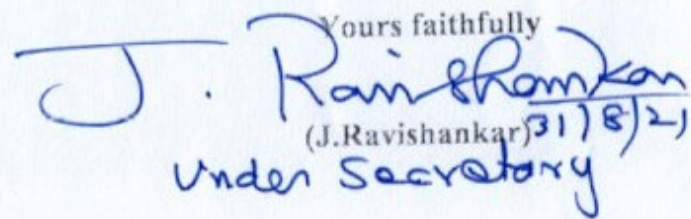 Yours faithfully
J. Ravishankar
31/8/21
(J.Ravishankar)
Under Secretary